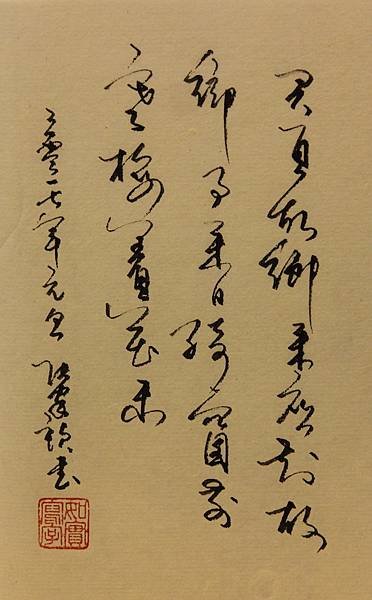 君自故鄉來應知故
鄉事來日綺窗前
寒梅著花未
二零一七年元旦 書